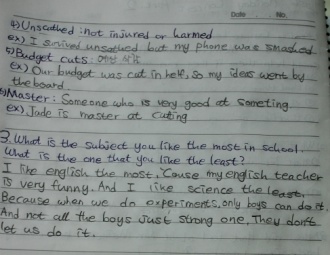 Date No.
4) Unscathed : not injured or harmed
ex) I survived unscathed but my phone was smashed
5) Budget cuts : 예산 삭감
ex) Our budget was cut in half, so my ideas went by
the board
6) Master : Someone who is very good at someting
ex) Jade is master at cuting
3. What is the subject you like the most in school.
What is the one that you like the least?
I like english the most, 'Cause my english teacher
is very funny. And I like science the least,
Because when we dn experiments, only boys can do it.
And not all the boys Just strong one. They don't
let us do it.